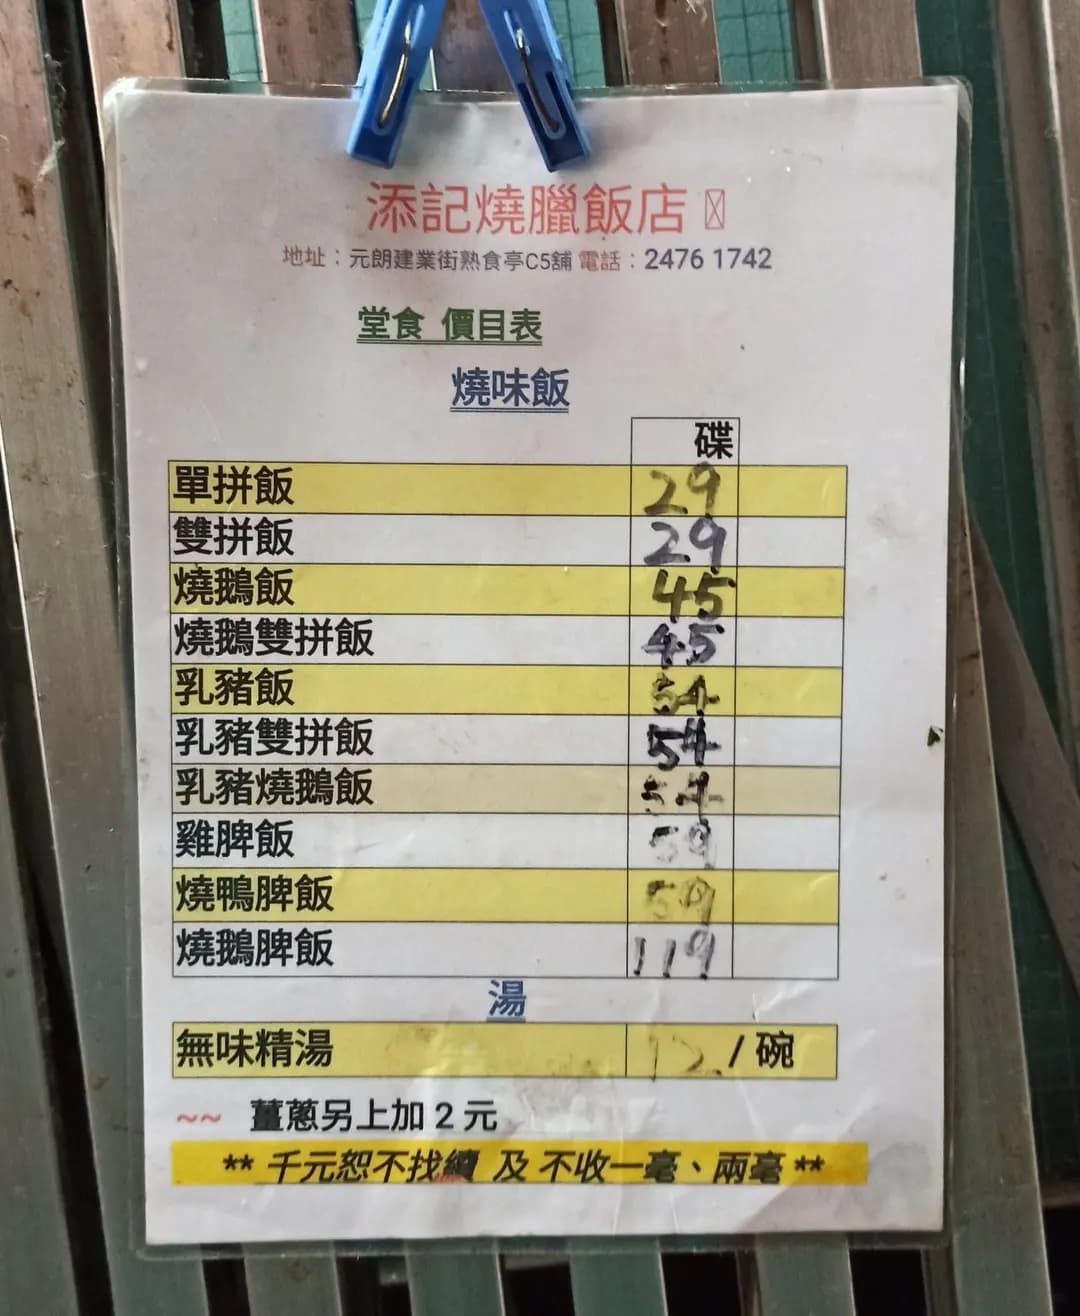 添記燒臘飯店
地址：元朗建業街熟食亭C5舖 電話：2476 1742
堂食 價目表
燒味飯
碟
單拼飯 29
雙拼飯 29
燒鵝飯 45
燒鵝雙拼飯 45
乳豬飯 54
乳豬雙拼飯 54
乳豬燒鵝飯 54
雞脾飯 59
燒鴨脾飯 59
燒鵝脾飯 119
湯
無味精湯 12 / 碗
~~ 薑蔥另上加 2 元
** 千元恕不找續 及 不收一毫、兩毫 **